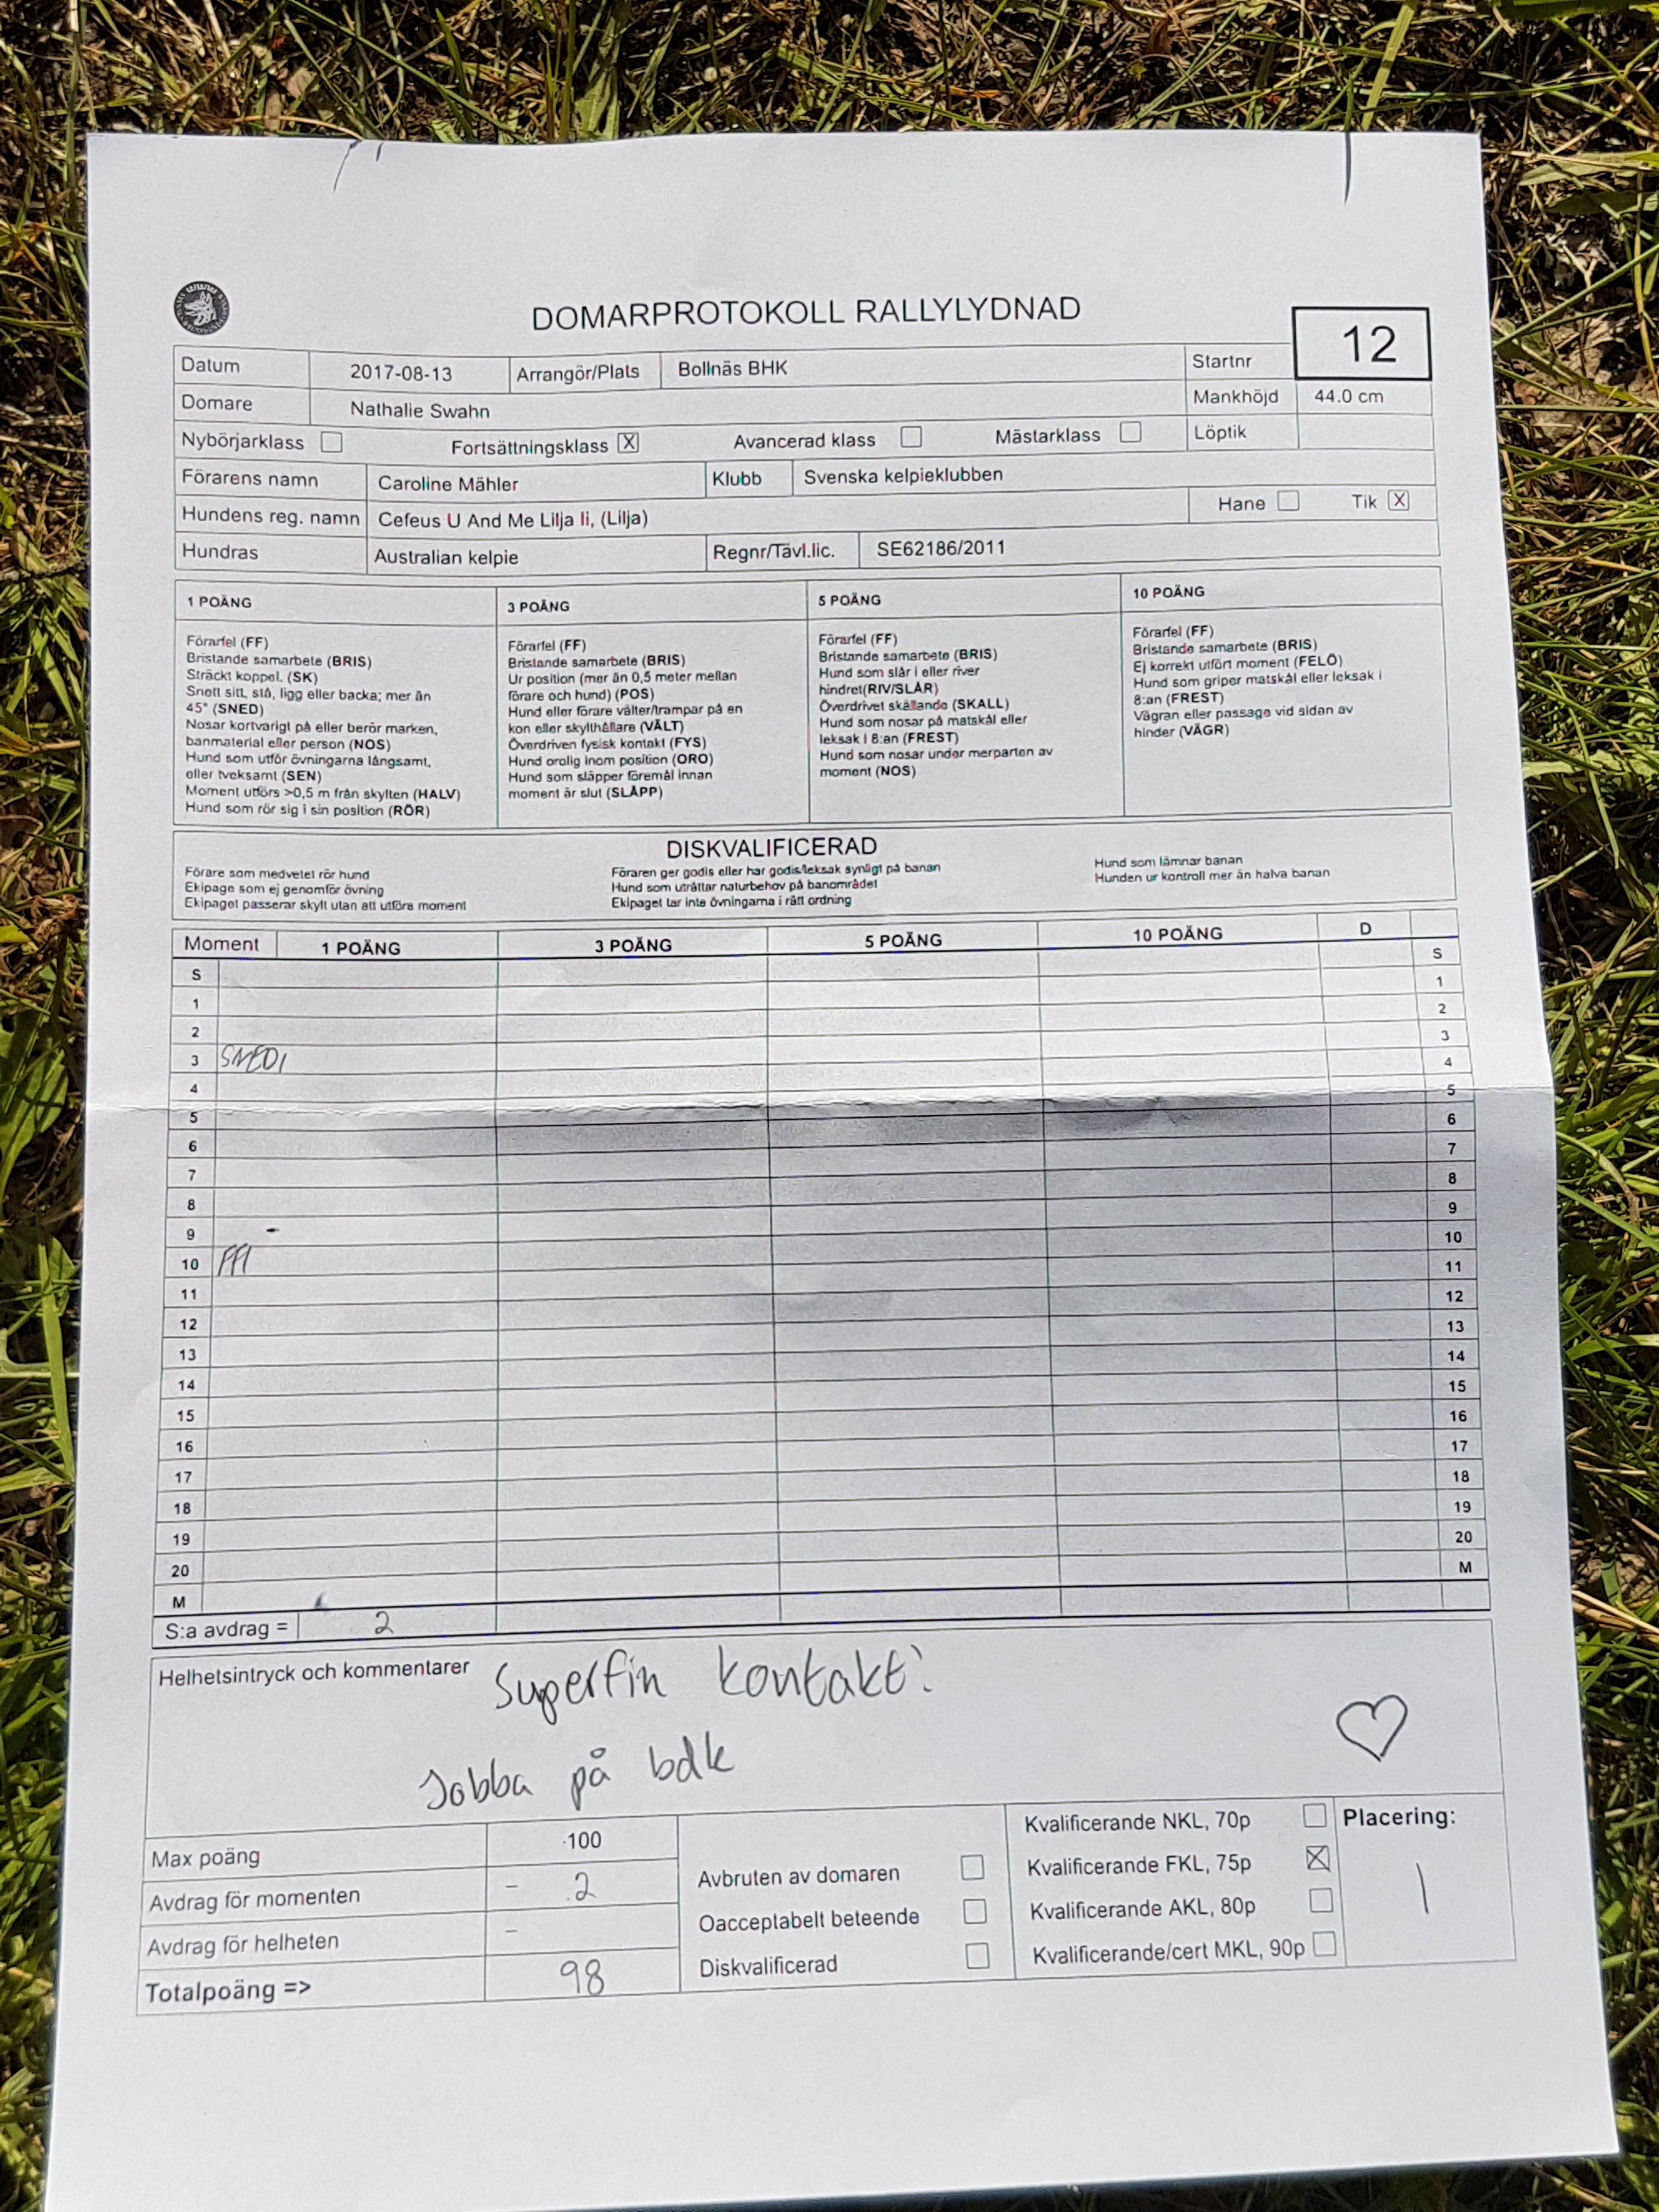 DOMARPROTOKOLL RALLYLYDNAD
Startnr 12
Datum 2017-08-13 Arrangör/Plats Bollnäs BHK
Domare Nathalie Swahn Mankhöjd 44.0 cm
Nybörjarklass Fortsättningsklass X Avancerad klass Mästarklass Löptik
Förarens namn Caroline Mähler Klubb Svenska kelpieklubben
Hundens reg. namn Cefeus U And Me Lilja Ii, (Lilja) Hane Tik X
Hundras Australian kelpie Regnr/Tävl.lic. SE62186/2011
1 POÄNG
Förarfel (FF)
Bristande samarbete (BRIS)
Sträckt koppel. (SK)
Snett sitt, stå, ligg eller backa; mer än
45° (SNED)
Nosar kortvarigt på eller berör marken,
banmaterial eller person (NOS)
Hund som utför övningarna långsamt,
eller tveksamt (SEN)
Moment utförs >0,5 m från skylten (HALV)
Hund som rör sig i sin position (RÖR)
3 POÄNG
Förarfel (FF)
Bristande samarbete (BRIS)
Ur position (mer än 0,5 meter mellan
förare och hund) (POS)
Hund eller förare välter/trampar på en
kon eller skylthållare (VÄLT)
Överdriven fysisk kontakt (FYS)
Hund orolig inom position (ORO)
Hund som släpper föremål innan
moment är slut (SLÄPP)
5 POÄNG
Förarfel (FF)
Bristande samarbete (BRIS)
Hund som slår i eller river
hindret(RIV/SLÅR)
Överdrivet skällande (SKALL)
Hund som nosar på matskål eller
leksak i 8:an (FREST)
Hund som nosar under merparten av
moment (NOS)
10 POÄNG
Förarfel (FF)
Bristande samarbete (BRIS)
Ej korrekt utfört moment (FELÖ)
Hund som griper matskål eller leksak i
8:an (FREST)
Vägran eller passage vid sidan av
hinder (VÄGR)
DISKVALIFICERAD
Förare som medvetet rör hund
Ekipage som ej genomför övning
Ekipaget passerar skylt utan att utföra moment
Föraren ger godis eller har godis/leksak synligt på banan
Hund som uträttar naturbehov på banområdet
Ekipaget tar inte övningarna i rätt ordning
Hund som lämnar banan
Hunden ur kontroll mer än halva banan
Moment 1 POÄNG 3 POÄNG 5 POÄNG 10 POÄNG D
S S
1 1
2 2
3 SNED1 3
4 4
5 5
6 6
7 7
8 8
9 - 9
10 FF1 10
11 11
12 12
13 13
14 14
15 15
16 16
17 17
18 18
19 19
20 20
M M
S:a avdrag = 2
Helhetsintryck och kommentarer Superfin kontakt!
Jobba på bdk
Max poäng 100
Avdrag för momenten - 2
Avdrag för helheten -
Totalpoäng => 98
Avbruten av domaren
Oacceptabelt beteende
Diskvalificerad
Kvalificerande NKL, 70p
Kvalificerande FKL, 75p X
Kvalificerande AKL, 80p
Kvalificerande/cert MKL, 90p
Placering:
1